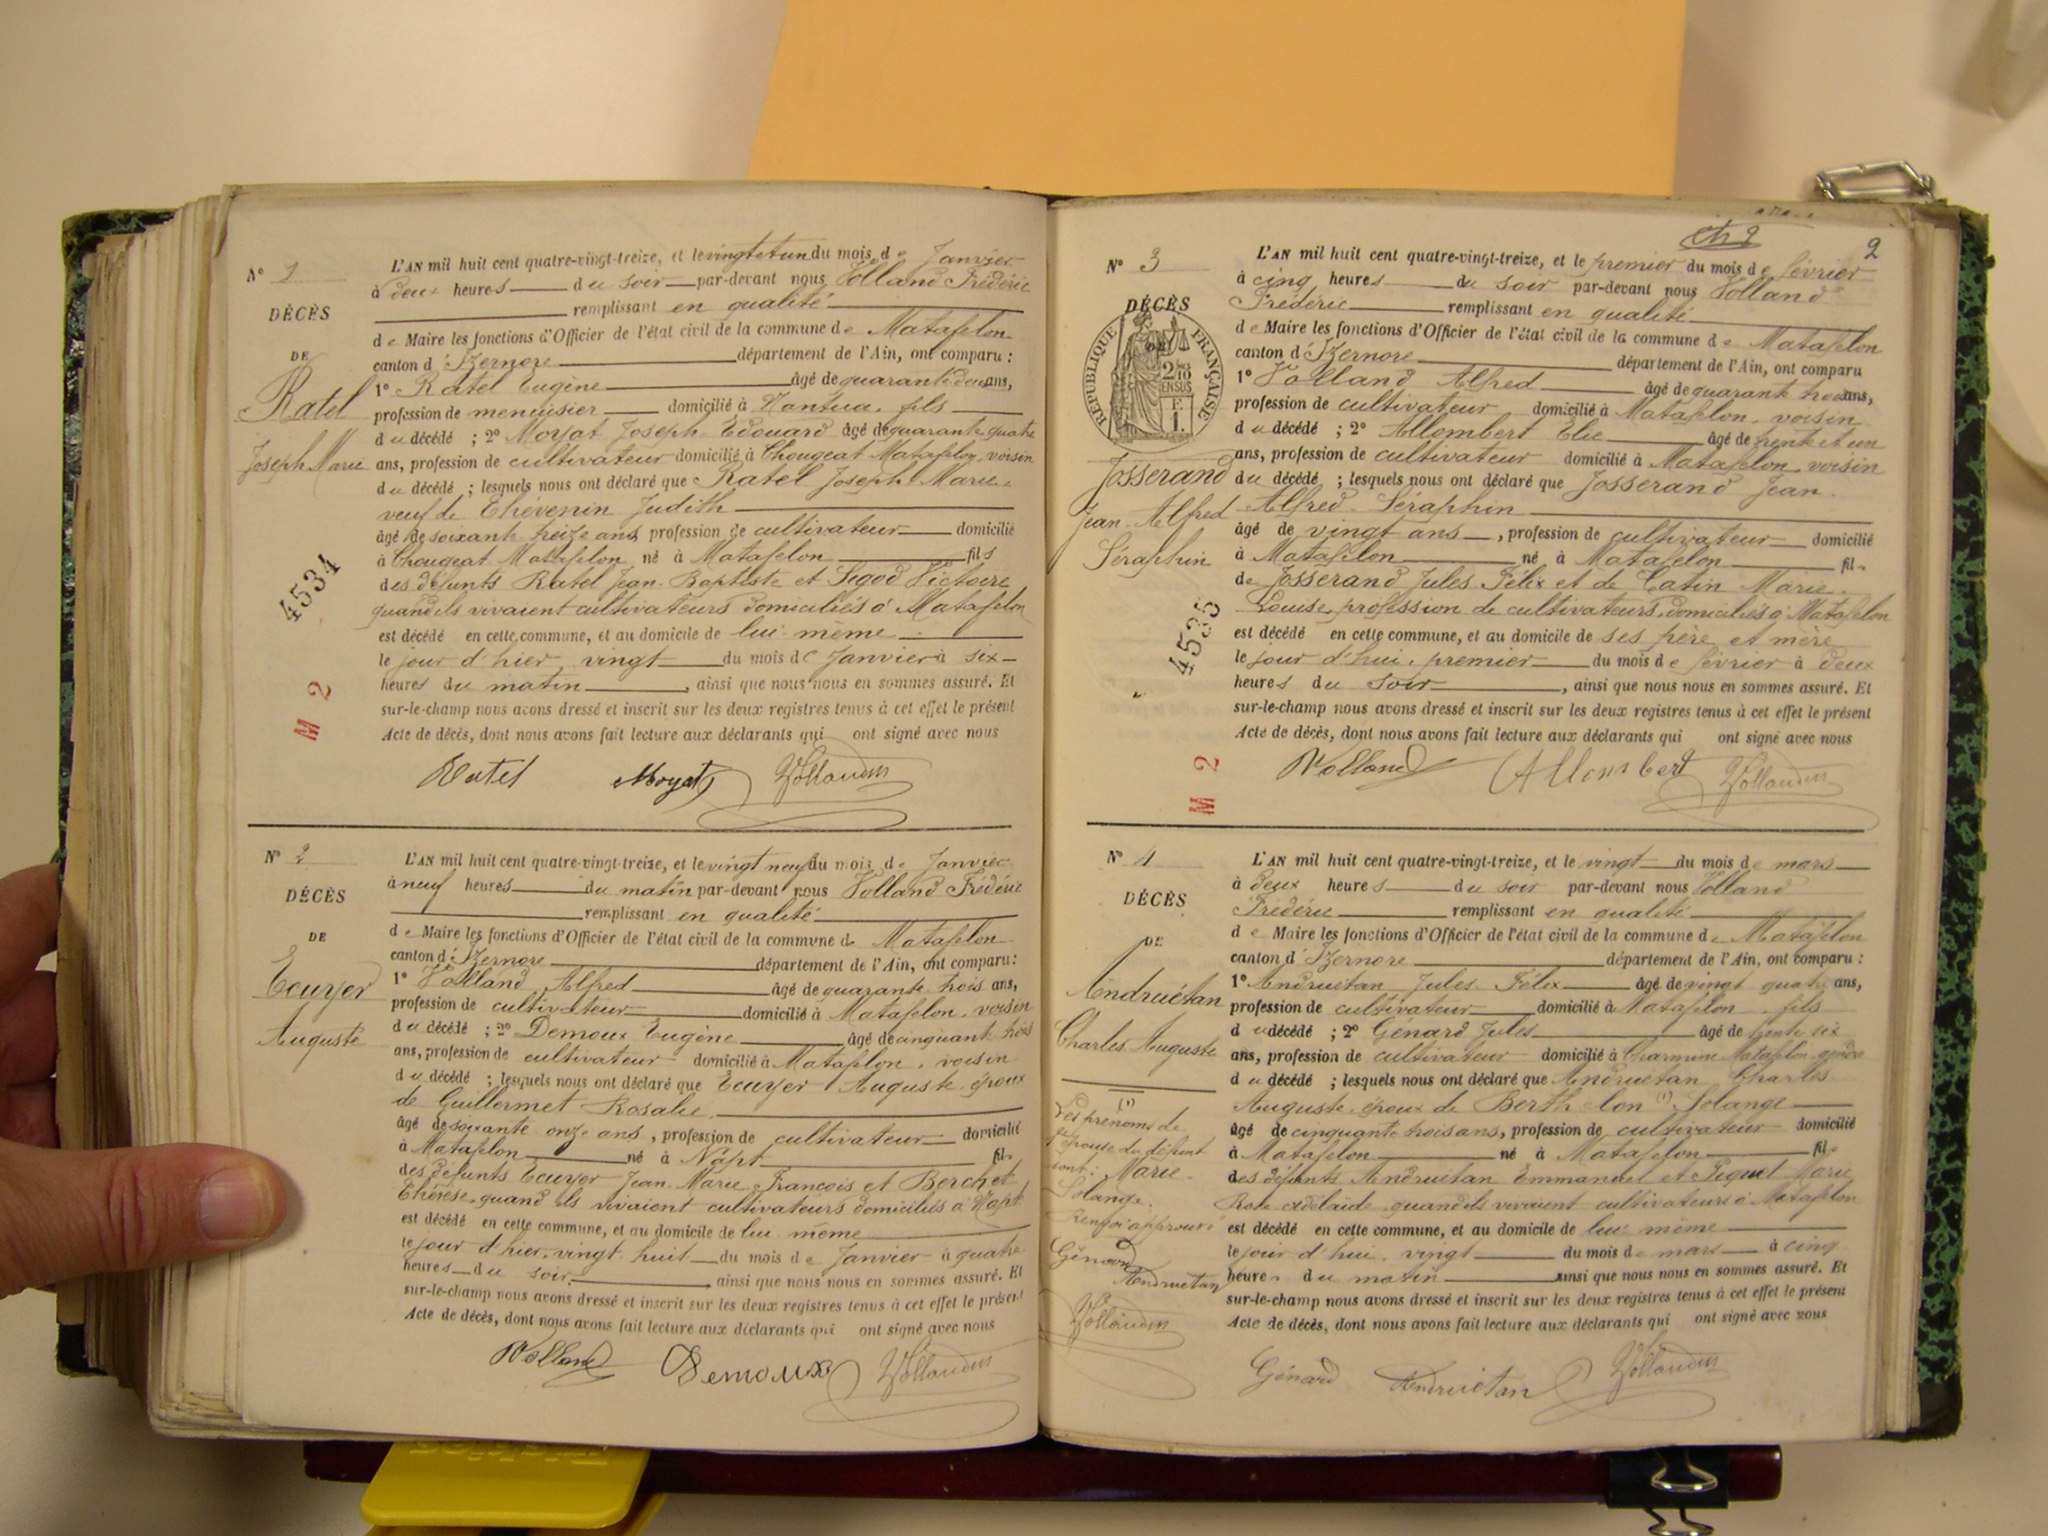 N° 1
DÉCÈS
DE
Ratel
Joseph Marie
4534
M 2
L'AN mil huit cent quatre-vingt-treize, et le vingt et un du mois de Janvier
à deux heures du soir par-devant nous Volland Frédéric
remplissant en qualité
de Maire les fonctions d'Officier de l'état civil de la commune de Matafelon
canton d'Izernore département de l'Ain, ont comparu :
1° Ratel Eugène âgé de quarante deux ans,
profession de menuisier domicilié à Nantua, fils
du décédé ; 2° Moyat Joseph Edouard âgé de quarante quatre
ans, profession de cultivateur domicilié à Chougeat Matafelon, voisin
du décédé ; lesquels nous ont déclaré que Ratel Joseph Marie,
veuf de Thévenin Judith
âgé de soixante treize ans, profession de cultivateur domicilié
à Chougeat Matafelon né à Matafelon fils
des défunts Ratel Jean-Baptiste et Segod Victoire
quand ils vivaient cultivateurs domiciliés à Matafelon
est décédé en cette commune, et au domicile de lui-même
le jour d'hier, vingt du mois de Janvier à six
heures du matin, ainsi que nous nous en sommes assuré. Et
sur-le-champ nous avons dressé et inscrit sur les deux registres tenus à cet effet le présent
Acte de décès, dont nous avons fait lecture aux déclarants qui ont signé avec nous
Ratel Moyat
N° 2
DÉCÈS
DE
Ecuyer
Auguste
L'AN mil huit cent quatre-vingt-treize, et le vingt neuf du mois de Janvier
à neuf heures du matin par-devant nous Volland Frédéric
remplissant en qualité
de Maire les fonctions d'Officier de l'état civil de la commune de Matafelon
canton d'Izernore département de l'Ain, ont comparu :
1° Volland Alfred âgé de quarante trois ans,
profession de cultivateur domicilié à Matafelon, voisin
du décédé ; 2° Demoux Eugène âgé de cinquante trois
ans, profession de cultivateur domicilié à Matafelon, voisin
du décédé ; lesquels nous ont déclaré que Ecuyer Auguste époux
de Guillermet Rosalie
âgé de soixante onze ans, profession de cultivateur domicilié
à Matafelon né à Napt fils
des défunts Ecuyer Jean-Marie-François et Berchet
Thérèse quand ils vivaient cultivateurs domiciliés à Napt
est décédé en cette commune, et au domicile de lui même
le jour d'hier, vingt huit du mois de Janvier à quatre
heures du soir, ainsi que nous nous en sommes assuré. Et
sur-le-champ nous avons dressé et inscrit sur les deux registres tenus à cet effet le présent
Acte de décès, dont nous avons fait lecture aux déclarants qui ont signé avec nous
Volland Demoux
2
N° 3
DÉCÈS
RÉPUBLIQUE FRANÇAISE
2/10 EN SUS
F. 1.
Josserand
Jean-Alfred
Séraphin
4535
M 2
L'AN mil huit cent quatre-vingt-treize, et le premier du mois de février
à cinq heures du soir par-devant nous Volland
Frédéric remplissant en qualité
de Maire les fonctions d'Officier de l'état civil de la commune de Matafelon
canton d'Izernore département de l'Ain, ont comparu
1° Volland Alfred âgé de quarante trois ans,
profession de cultivateur domicilié à Matafelon, voisin
du décédé ; 2° Allombert Elie âgé de trente et un
ans, profession de cultivateur domicilié à Matafelon, voisin
du décédé ; lesquels nous ont déclaré que Josserand Jean-
Alfred-Séraphin
âgé de vingt ans, profession de cultivateur domicilié
à Matafelon né à Matafelon fils
de Josserand Jules Félix et de Catin Marie-
Louise, profession de cultivateurs, domiciliés à Matafelon
est décédé en cette commune, et au domicile de ses père et mère
le jour d'hui, premier du mois de février à deux
heures du soir, ainsi que nous nous en sommes assuré. Et
sur-le-champ nous avons dressé et inscrit sur les deux registres tenus à cet effet le présent
Acte de décès, dont nous avons fait lecture aux déclarants qui ont signé avec nous
Volland Allombert
N° 4
DÉCÈS
DE
Andruétan
Charles Auguste
(1)
Les prénoms de
l'épouse du défunt
sont : Marie-
Solange.
Renvoi approuvé
Génard
Andruétan
L'AN mil huit cent quatre-vingt-treize, et le vingt du mois de mars
à deux heures du soir par-devant nous Volland
Frédéric remplissant en qualité
de Maire les fonctions d'Officier de l'état civil de la commune de Matafelon
canton d'Izernore département de l'Ain, ont comparu :
1° Andruétan Jules Félix âgé de vingt quatre ans,
profession de cultivateur domicilié à Matafelon, fils
du décédé ; 2° Génard Jules âgé de trente six
ans, profession de cultivateur domicilié à Charmine Matafelon gendre
du décédé ; lesquels nous ont déclaré que Andruétan Charles
Auguste époux de Berthelon (1) Solange
âgé de cinquante trois ans, profession de cultivateur domicilié
à Matafelon né à Matafelon fils
des défunts Andruétan Emmanuel et Piquet Marie
Rose Adélaïde quand ils vivaient cultivateurs à Matafelon
est décédé en cette commune, et au domicile de lui même
le jour d'hui, vingt du mois de mars à cinq
heures du matin ainsi que nous nous en sommes assuré. Et
sur-le-champ nous avons dressé et inscrit sur les deux registres tenus à cet effet le présent
Acte de décès, dont nous avons fait lecture aux déclarants qui ont signé avec nous
Génard Andruétan